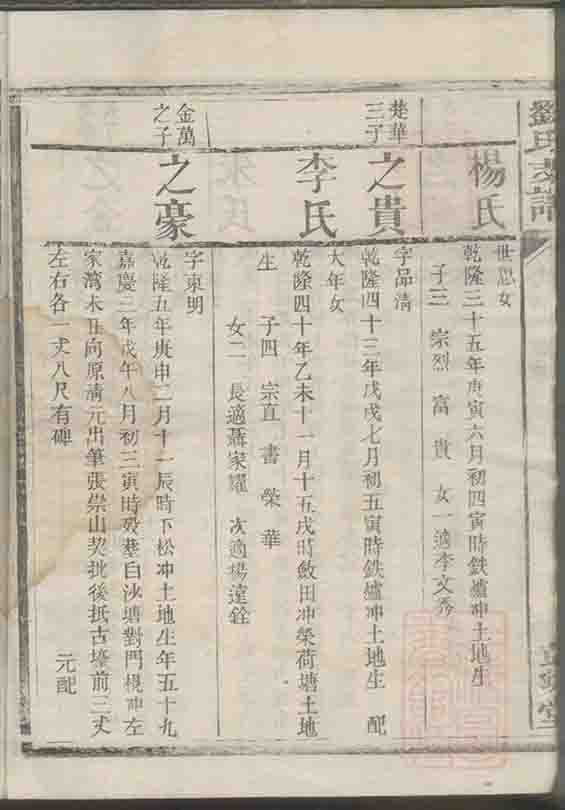 劉氏支譜
楊氏
世思女
乾隆三十五年庚寅六月初四寅時鉄爐冲土地生
子三 宗烈 富 貴 女一適李文秀
楚華
三子
之貴
字品清
乾隆四十三年戊戌七月初五寅時鉄爐冲土地生 配
李氏
大年女
乾隆四十年乙未十一月十五戌時斂田冲榮荷塘土地
生 子四 宗直 書 榮 華
女二 長適聶家耀 次適楊達銓
金萬
之子
之豪
字東明
乾隆五年庚申二月十一辰時下松冲土地生年五十九
嘉慶三年戊午八月初三寅時殁塟白沙塘對門梘冲左
家灣木丑向原清元出筆張崇山契批後抵古壕前三丈
左右各一丈八尺有碑 元配